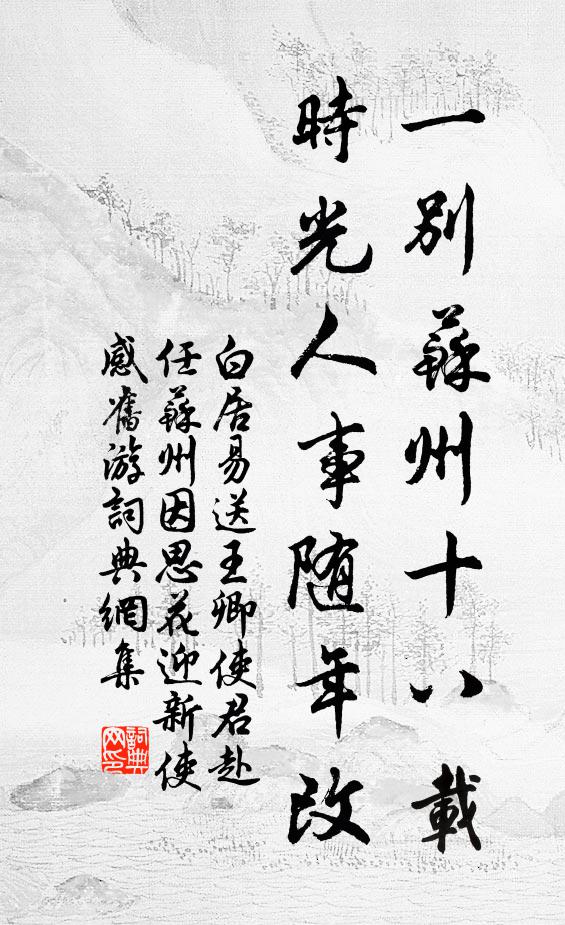 一別蘇州十八載
時光人事随年改
白居易送王卿使君赴
任蘇州因思花迎新使
感舊游詞典網集
詞典网印